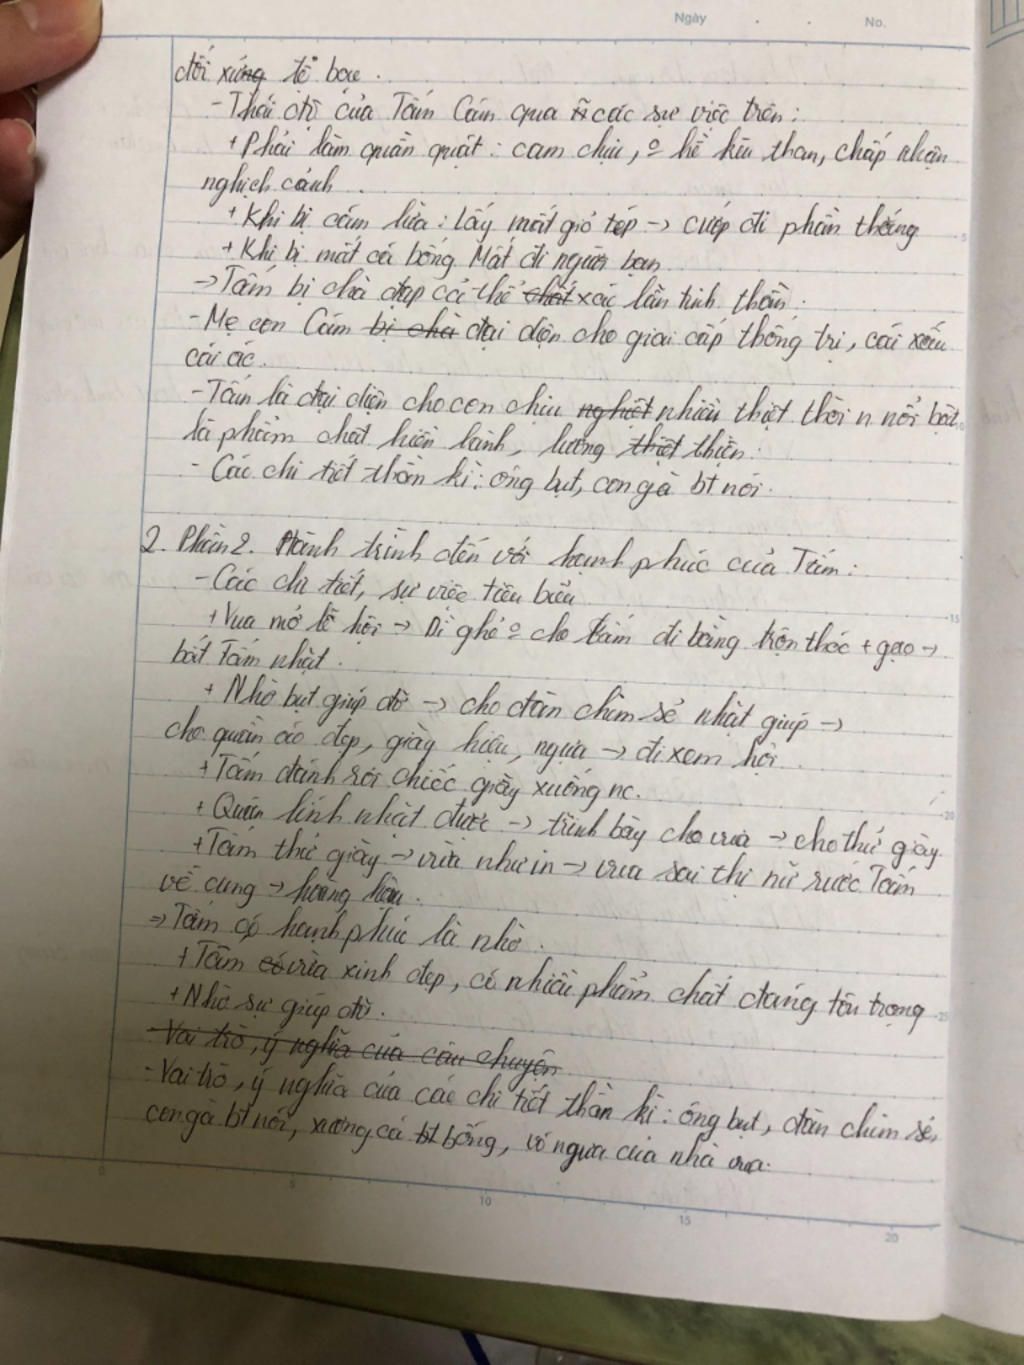 Ngày . . No.
đối xứng tệ bạc.
- Thái độ của Tấm Cám qua các sự việc trên:
+ Phải làm quần quật: cam chịu, º hề kêu than, chấp nhận
nghịch cảnh.
+ Khi bị cám lừa: Lấy mất giỏ tép -> cướp đi phần thưởng
+ Khi bị mất cá bống. Mất đi người bạn
-> Tấm bị chà đạp cả thể chất xác lẫn tinh thần.
- Mẹ con Cám bị chà đại diện cho giai cấp thống trị, cái xấu
cái ác.
- Tấm là đại diện cho con chịu nghiệt nhiều thiệt thòi n nổi bật
là phẩm chất hiền lành, lương thiệt thiện.
- Các chi tiết thần kì: ông bụt, con gà bt nói.
2. Phần 2. Hành trình đến với hạnh phúc của Tấm:
- Các chi tiết, sự việc tiêu biểu
+ Vua mở lễ hội -> Dì ghẻ º cho tấm đi bằng trộn thóc + gạo ->
bắt Tấm nhặt.
+ Nhờ bụt giúp đỡ -> cho đàn chim sẻ nhặt giúp ->
cho quần áo đẹp, giày hiệu, ngựa -> đi xem hội.
+ Tấm đánh rơi chiếc giày xuống nc.
+ Quân lính nhặt được -> trình bày cho vua -> cho thử giày.
+ Tấm thử giày -> vừa như in -> vua sai thị nữ rước Tấm
về cung -> hoàng hậu.
=> Tấm có hạnh phúc là nhờ.
+ Tấm có vừa xinh đẹp, có nhiều phẩm chất đáng tôn trọng
+ Nhờ sự giúp đỡ.
- Vai trò, ý nghĩa của câu chuyện
- Vai trò, ý nghĩa của các chi tiết thần kì: ông bụt, đàn chim sẻ,
con gà bt nói, xương cá bt bống, vó ngựa của nhà vua.
0 5 10 15 20